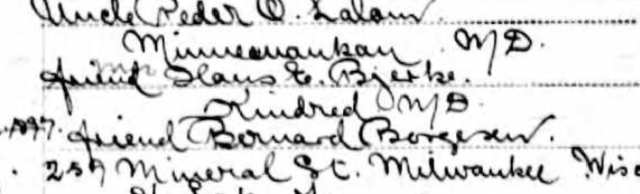 Uncle Peder O. Lalum.
Minnewaukan N.D.
friend Hans E. Bjerke.
Kindred N.D.
1897. friend Bernard Borgesen.
257 Mineral St. Milwaukee Wis